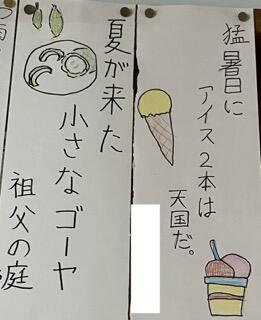 猛暑日に
アイス2本は
天国だ。
夏が来た
小さなゴーヤ
祖父の庭